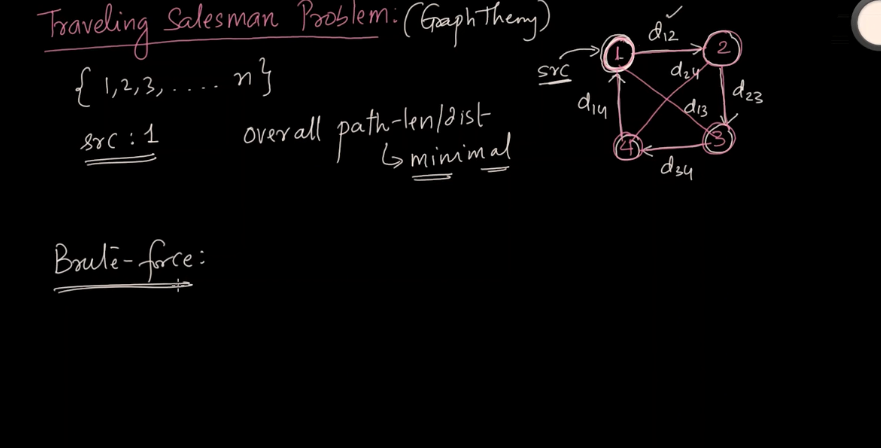 Traveling Salesman Problem: (Graph Theory)
{1,2,3, .... n}
src : 1
overall path-len/dist
↳ minimal
src
1
2
3
4
d12 ✓
d24
d23
d13
d14
d34
Brute-force: